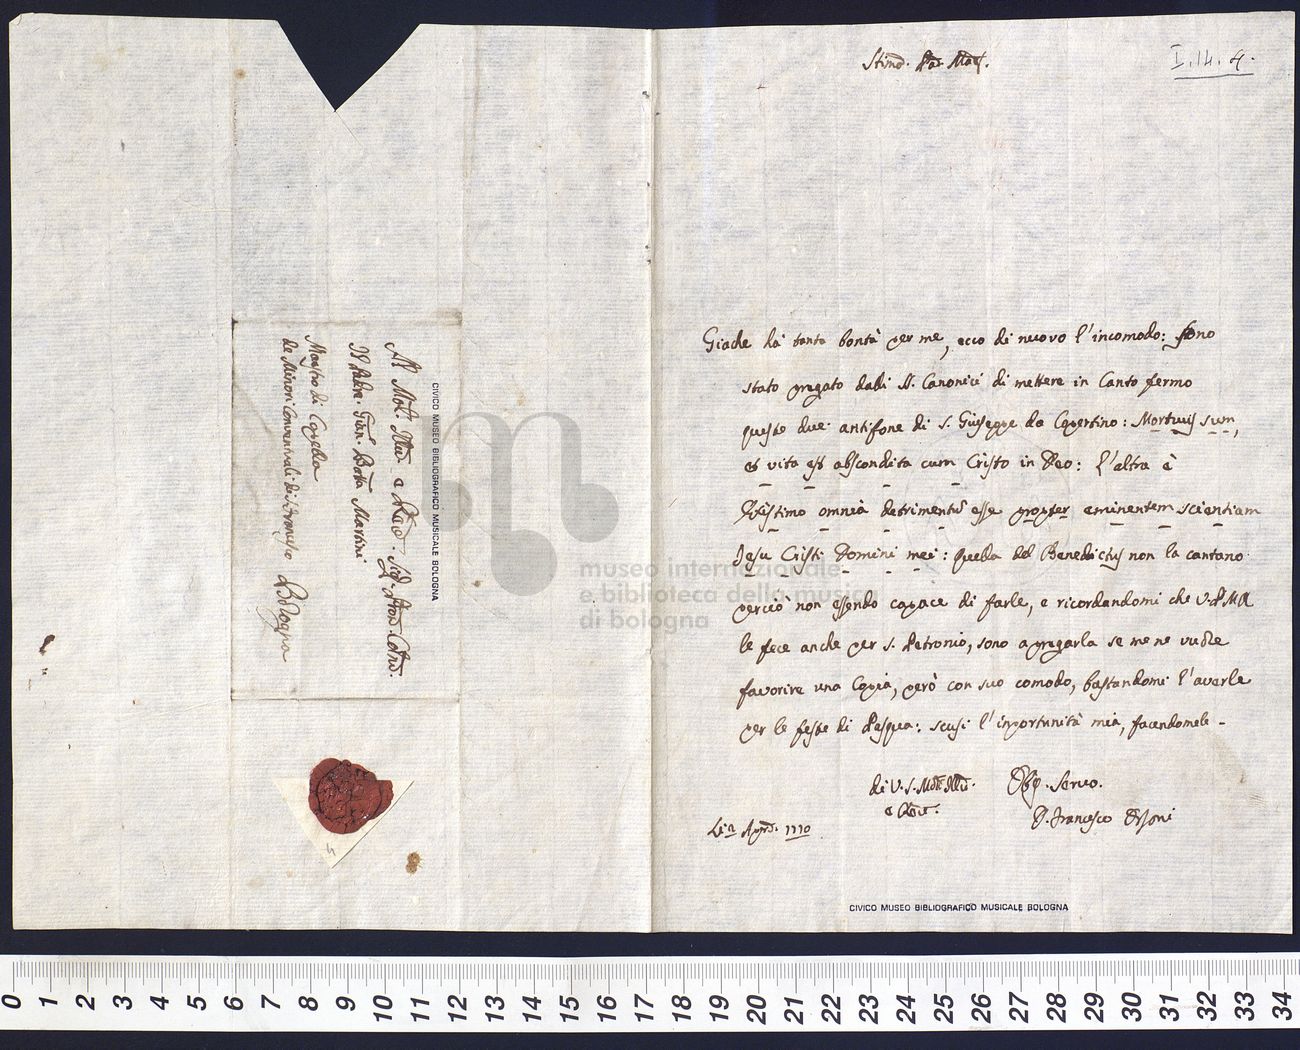 I.14.4.
Stimo. Pad. Maest.
Giache hà tanta bontà per me, ecco di nuovo l'incomodo: sono
stato pregato dalli SS. Canonici di mettere in Canto fermo
queste due antifone di S. Giuseppe da Copertino: Mortuus sum,
et vita est abscondita cum Cristo in Deo: l'altra è
Existimo omnia detrimentu esse propter eminentem scientiam
Jesu Cristi Domini mei: quella del Benedictus non la cantano
perciò non essendo capace di farle, e ricordandomi che V. P. M. R.
le fece anche per S. Petronio, sono a pregarla se me ne vuole
favorire una Copia, però con suo comodo, bastandomi l'averle
per le feste di Pasqua: scusi l'inportunità mia, facendomele -
di V. S. Molt. Illu.
e Reve.
Obg. Servo.
D. Francesco Orsoni
Li 2 Apr. 1770
CIVICO MUSEO BIBLIOGRAFICO MUSICALE BOLOGNA
CIVICO MUSEO BIBLIOGRAFICO MUSICALE BOLOGNA
Al Mol. Illu. e Reve. Sig. Pron. Colmo.
Il Padre Gian. Batta Martini
Maestro di Capella
de Minori Conventuali di S. Francesco Bologna
4
museo internazionale
e biblioteca della musica
di bologna
0 1 2 3 4 5 6 7 8 9 10 11 12 13 14 15 16 17 18 19 20 21 22 23 24 25 26 27 28 29 30 31 32 33 34